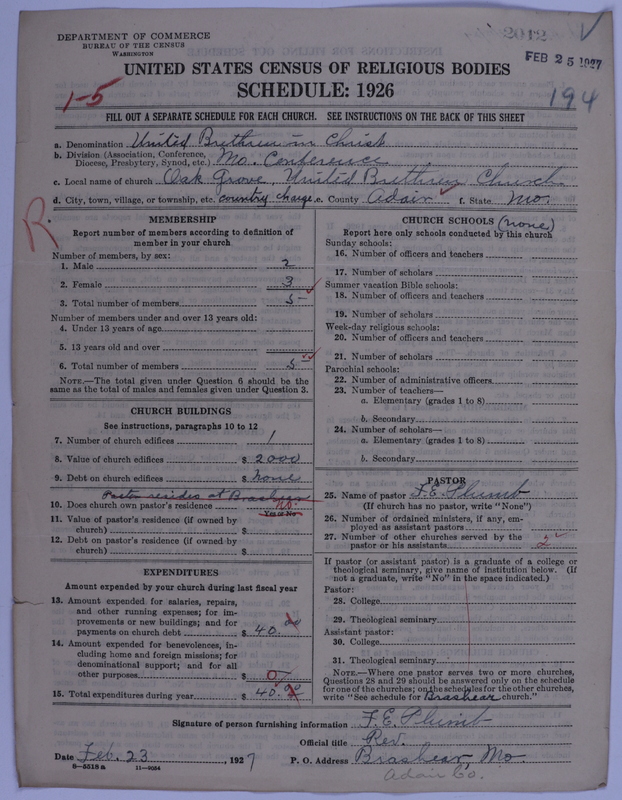 DEPARTMENT OF COMMERCE
BUREAU OF THE CENSUS
WASHINGTON
2012
FEB 25 1927
UNITED STATES CENSUS OF RELIGIOUS BODIES
SCHEDULE: 1926
1-5
194
FILL OUT A SEPARATE SCHEDULE FOR EACH CHURCH. SEE INSTRUCTIONS ON THE BACK OF THIS SHEET
a. Denomination United Brethren in Christ
b. Division (Association, Conference, Diocese, Presbytery, Synod, etc.) Mo. Conference
c. Local name of church Oak Grove, United Brethren Church
d. City, town, village, or township, etc. country charge e. County Adair f. State Mo.
R
MEMBERSHIP
Report number of members according to definition of
member in your church
Number of members, by sex:
1. Male 2
2. Female 3
3. Total number of members 5
Number of members under and over 13 years old:
4. Under 13 years of age
5. 13 years old and over
6. Total number of members 5
NOTE.—The total given under Question 6 should be the
same as the total of males and females given under Question 3.
CHURCH BUILDINGS
See instructions, paragraphs 10 to 12
7. Number of church edifices 1
8. Value of church edifices $ 2000
9. Debt on church edifices $ None
Pastor resides at Brashear
10. Does church own pastor's residence no.
Yes or No
11. Value of pastor's residence (if owned by
church) $
12. Debt on pastor's residence (if owned by
church) $
EXPENDITURES
Amount expended by your church during last fiscal year
13. Amount expended for salaries, repairs,
and other running expenses; for im-
provements or new buildings; and for
payments on church debt $ 40.
14. Amount expended for benevolences, in-
cluding home and foreign missions; for
denominational support; and for all
other purposes $ 0
15. Total expenditures during year $ 40.
CHURCH SCHOOLS (none)
Report here only schools conducted by this church
Sunday schools:
16. Number of officers and teachers
17. Number of scholars
Summer vacation Bible schools:
18. Number of officers and teachers
19. Number of scholars
Week-day religious schools:
20. Number of officers and teachers
21. Number of scholars
Parochial schools:
22. Number of administrative officers
23. Number of teachers—
a. Elementary (grades 1 to 8)
b. Secondary
24. Number of scholars—
a. Elementary (grades 1 to 8)
b. Secondary
PASTOR
25. Name of pastor F. E. Plumb
(If church has no pastor, write "None")
26. Number of ordained ministers, if any, em-
ployed as assistant pastors
27. Number of other churches served by the
pastor or his assistants 2
If pastor (or assistant pastor) is a graduate of a college or
theological seminary, give name of institution below. (If
not a graduate, write "No" in the space indicated.)
Pastor:
28. College
29. Theological seminary
Assistant pastor:
30. College
31. Theological seminary
NOTE.—Where one pastor serves two or more churches,
Questions 28 and 29 should be answered only on the schedule
for one of the churches; on the schedules for the other churches,
write "See schedule for Brashear church."
Signature of person furnishing information F. E. Plumb
Official title Rev.
Date Feb. 23, 1927 P. O. Address Brashear, Mo.
8—5518 a 11—9054
Adair Co.